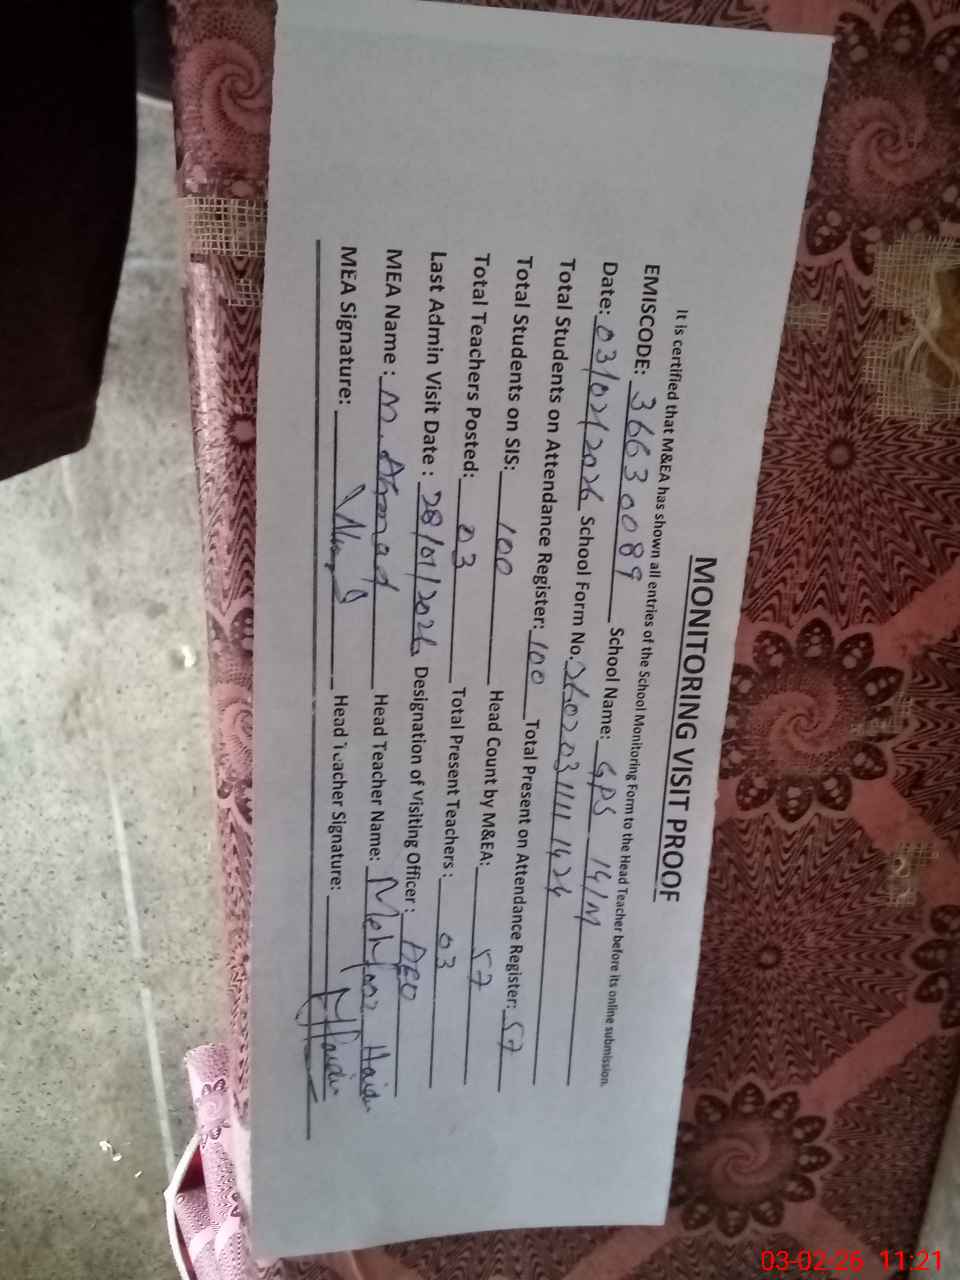 MONITORING VISIT PROOF
It is certified that M&EA has shown all entries of the School Monitoring Form to the Head Teacher before its online submission.
EMISCODE: 36630089 School Name: GPS 14/M
Date: 03/02/2026 School Form No. 2602031111424
Total Students on Attendance Register: 100 Total Present on Attendance Register: 57
Total Students on SIS: 100 Head Count by M&EA: 57
Total Teachers Posted: 03 Total Present Teachers: 03
Last Admin Visit Date: 28/01/2026 Designation of Visiting Officer: AEO
MEA Name: M. Ahmad Head Teacher Name:
MEA Signature: Head Teacher Signature:
03-02-26 11:21